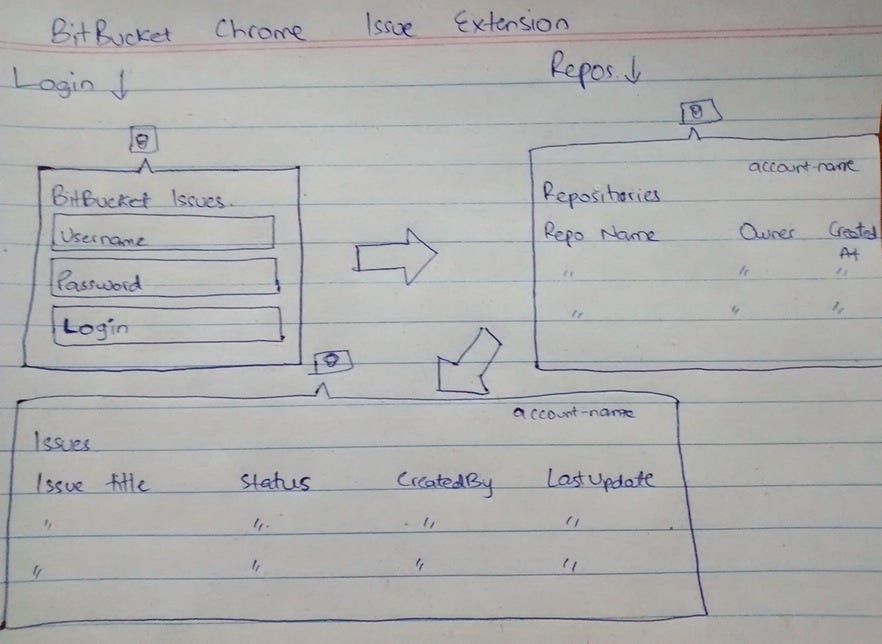 BitBucket Chrome Issue Extension
Login ↓
Repos. ↓
BitBucket Issues.
Username
Password
Login
account-name
Repositories
Repo Name Owner Created At
" " "
" " "
account-name
Issues
Issue title Status CreatedBy LastUpdate
" " " "
" " " "